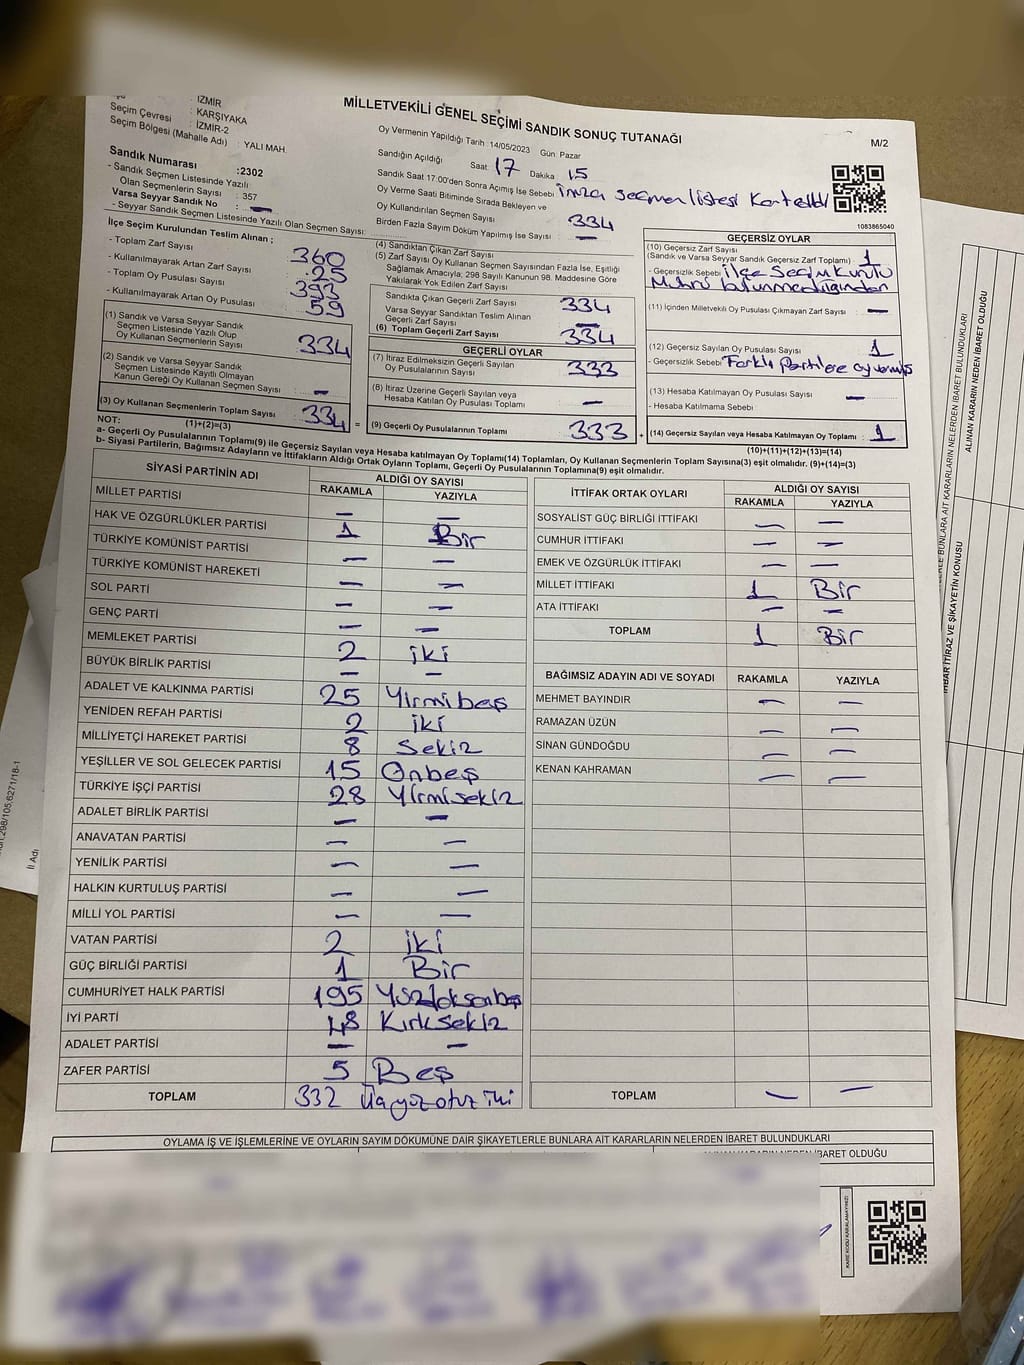 MİLLETVEKİLİ GENEL SEÇİMİ SANDIK SONUÇ TUTANAĞI
M/2
: İZMİR
Seçim Çevresi : KARŞIYAKA
Seçim Bölgesi (Mahalle Adı) : İZMİR-2
: YALI MAH.
Sandık Numarası :2302
- Sandık Seçmen Listesinde Yazılı
Olan Seçmenlerin Sayısı : 357
Varsa Seyyar Sandık No : —
- Seyyar Sandık Seçmen Listesinde Yazılı Olan Seçmen Sayısı:
Oy Vermenin Yapıldığı Tarih : 14/05/2023 Gün: Pazar
Sandığın Açıldığı Saat 17 Dakika 15
Sandık Saat 17:00'den Sonra Açılmış İse Sebebi imza seçmen listesi
Oy Verme Saati Bitiminde Sırada Bekleyen ve
Oy Kullandırılan Seçmen Sayısı 334
Birden Fazla Sayım Döküm Yapılmış İse Sayısı —
1083865040
İlçe Seçim Kurulundan Teslim Alınan ;
- Toplam Zarf Sayısı 360
- Kullanılmayarak Artan Zarf Sayısı 25
- Toplam Oy Pusulası Sayısı 393
- Kullanılmayarak Artan Oy Pusulası 59
(1) Sandık ve Varsa Seyyar Sandık
Seçmen Listesinde Yazılı Olup
Oy Kullanan Seçmenlerin Sayısı 334
(2) Sandık ve Varsa Seyyar Sandık
Seçmen Listesinde Kayıtlı Olmayan
Kanun Gereği Oy Kullanan Seçmen Sayısı —
(3) Oy Kullanan Seçmenlerin Toplam Sayısı 334
(1)+(2)=(3)
(4) Sandıktan Çıkan Zarf Sayısı
(5) Zarf Sayısı Oy Kullanan Seçmen Sayısından Fazla İse, Eşitliği
Sağlamak Amacıyla; 298 Sayılı Kanunun 98. Maddesine Göre
Yakılarak Yok Edilen Zarf Sayısı
Sandıkta Çıkan Geçerli Zarf Sayısı 334
Varsa Seyyar Sandıktan Teslim Alınan
Geçerli Zarf Sayısı —
(6) Toplam Geçerli Zarf Sayısı 334
GEÇERLİ OYLAR
(7) İtiraz Edilmeksizin Geçerli Sayılan
Oy Pusulalarının Sayısı 333
(8) İtiraz Üzerine Geçerli Sayılan veya
Hesaba Katılan Oy Pusulası Toplamı —
= (9) Geçerli Oy Pusulalarının Toplamı 333 +
GEÇERSİZ OYLAR
(10) Geçersiz Zarf Sayısı
(Sandık ve Varsa Seyyar Sandık Geçersiz Zarf Toplamı) 1
- Geçersizlik Sebebi ilçe Seçim Kurulu
Mührü bulunmadığından
(11) İçinden Milletvekili Oy Pusulası Çıkmayan Zarf Sayısı —
(12) Geçersiz Sayılan Oy Pusulası Sayısı 1
- Geçersizlik Sebebi Farklı partilere oy vermiş
(13) Hesaba Katılmayan Oy Pusulası Sayısı —
- Hesaba Katılmama Sebebi
(14) Geçersiz Sayılan veya Hesaba Katılmayan Oy Toplamı : 1
(10)+(11)+(12)+(13)=(14)
NOT:
a- Geçerli Oy Pusulalarının Toplamı(9) ile Geçersiz Sayılan veya Hesaba Katılmayan Oy Toplamı(14) Toplamları, Oy Kullanan Seçmenlerin Toplam Sayısına(3) eşit olmalıdır. (9)+(14)=(3)
b- Siyasi Partilerin, Bağımsız Adayların ve İttifakların Aldığı Ortak Oyların Toplamı, Geçerli Oy Pusulalarının Toplamına(9) eşit olmalıdır.
SİYASİ PARTİNİN ADI ALDIĞI OY SAYISI
RAKAMLA YAZIYLA
MİLLET PARTİSİ — —
HAK VE ÖZGÜRLÜKLER PARTİSİ 1 Bir
TÜRKİYE KOMÜNİST PARTİSİ — —
TÜRKİYE KOMÜNİST HAREKETİ — —
SOL PARTİ — —
GENÇ PARTİ — —
MEMLEKET PARTİSİ 2 iki
BÜYÜK BİRLİK PARTİSİ — —
ADALET VE KALKINMA PARTİSİ 25 Yirmibeş
YENİDEN REFAH PARTİSİ 2 iki
MİLLİYETÇİ HAREKET PARTİSİ 8 Sekiz
YEŞİLLER VE SOL GELECEK PARTİSİ 15 Onbeş
TÜRKİYE İŞÇİ PARTİSİ 28 Yirmisekiz
ADALET BİRLİK PARTİSİ — —
ANAVATAN PARTİSİ — —
YENİLİK PARTİSİ — —
HALKIN KURTULUŞ PARTİSİ — —
MİLLİ YOL PARTİSİ — —
VATAN PARTİSİ 2 iki
GÜÇ BİRLİĞİ PARTİSİ 1 Bir
CUMHURİYET HALK PARTİSİ 195 Yüzdoksanbeş
İYİ PARTİ 48 Kırksekiz
ADALET PARTİSİ — —
ZAFER PARTİSİ 5 Beş
TOPLAM 332 Üçyüzotuziki
İTTİFAK ORTAK OYLARI ALDIĞI OY SAYISI
RAKAMLA YAZIYLA
SOSYALİST GÜÇ BİRLİĞİ İTTİFAKI — —
CUMHUR İTTİFAKI — —
EMEK VE ÖZGÜRLÜK İTTİFAKI — —
MİLLET İTTİFAKI 1 Bir
ATA İTTİFAKI — —
TOPLAM 1 Bir
BAĞIMSIZ ADAYIN ADI VE SOYADI RAKAMLA YAZIYLA
MEHMET BAYINDIR — —
RAMAZAN ÜZÜN — —
SİNAN GÜNDOĞDU — —
KENAN KAHRAMAN — —
TOPLAM — —
OYLAMA İŞ VE İŞLEMLERİNE VE OYLARIN SAYIM DÖKÜMÜNE DAİR ŞİKAYETLERLE BUNLARA AİT KARARLARIN NELERDEN İBARET BULUNDUKLARI
İBARET OLDUĞU
KARE KODU KARALAMAYINIZ!
BUNLARA AİT KARARLARIN NELERDEN İBARET BULUNDUKLARI
ALINAN KARARIN NEDEN İBARET OLDUĞU
İHBAR İTİRAZ VE ŞİKAYETİN KONUSU
298/105,6271/18-1
İl Adı